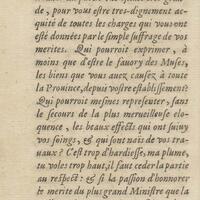 de, pour vous estre tres-dignement ac-
quité de toutes les charges qui vous ont
esté données par le simple suffrage de vos
merites. Qui pourroit exprimer, à
moins que d'estre le fauory des Muses,
les biens que vous auez causez à toute
la Prouince, depuis vostre establissement?
Qui pourroit mesmes representer, sans
le secours de la plus merueilleuse elo-
quence, les beaux effects qui ont suiuy
vos soings, & qui sont nais de vos tra-
uaux? C'est trop d'hardiesse, ma plume,
tu voles trop haut, il faut ceder la partie
au respect: & si la passion d'honnorer
le merite du plus grand Ministre que la